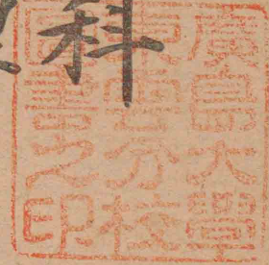 科
廣島大學
東雲分校
圖書之印